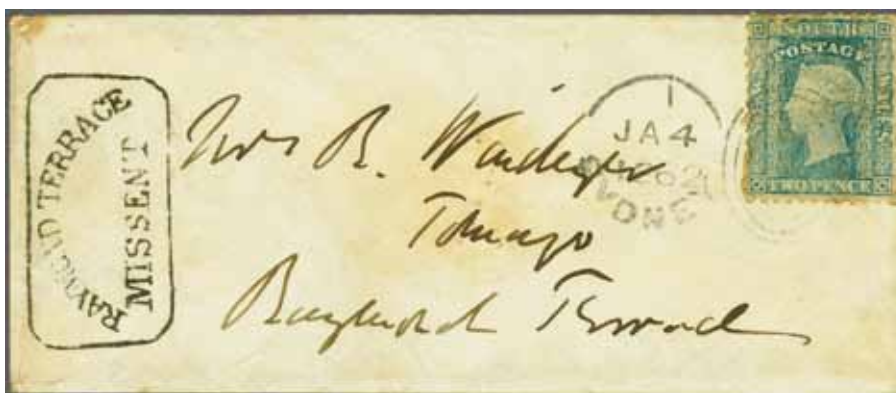 RAYMOND TERRACE
MISSENT
Mrs R. Windeyer
Tomago
Raymond Terrace
1
JA 4
1862
SYDNEY
SOUTH
POSTAGE
TWO PENCE